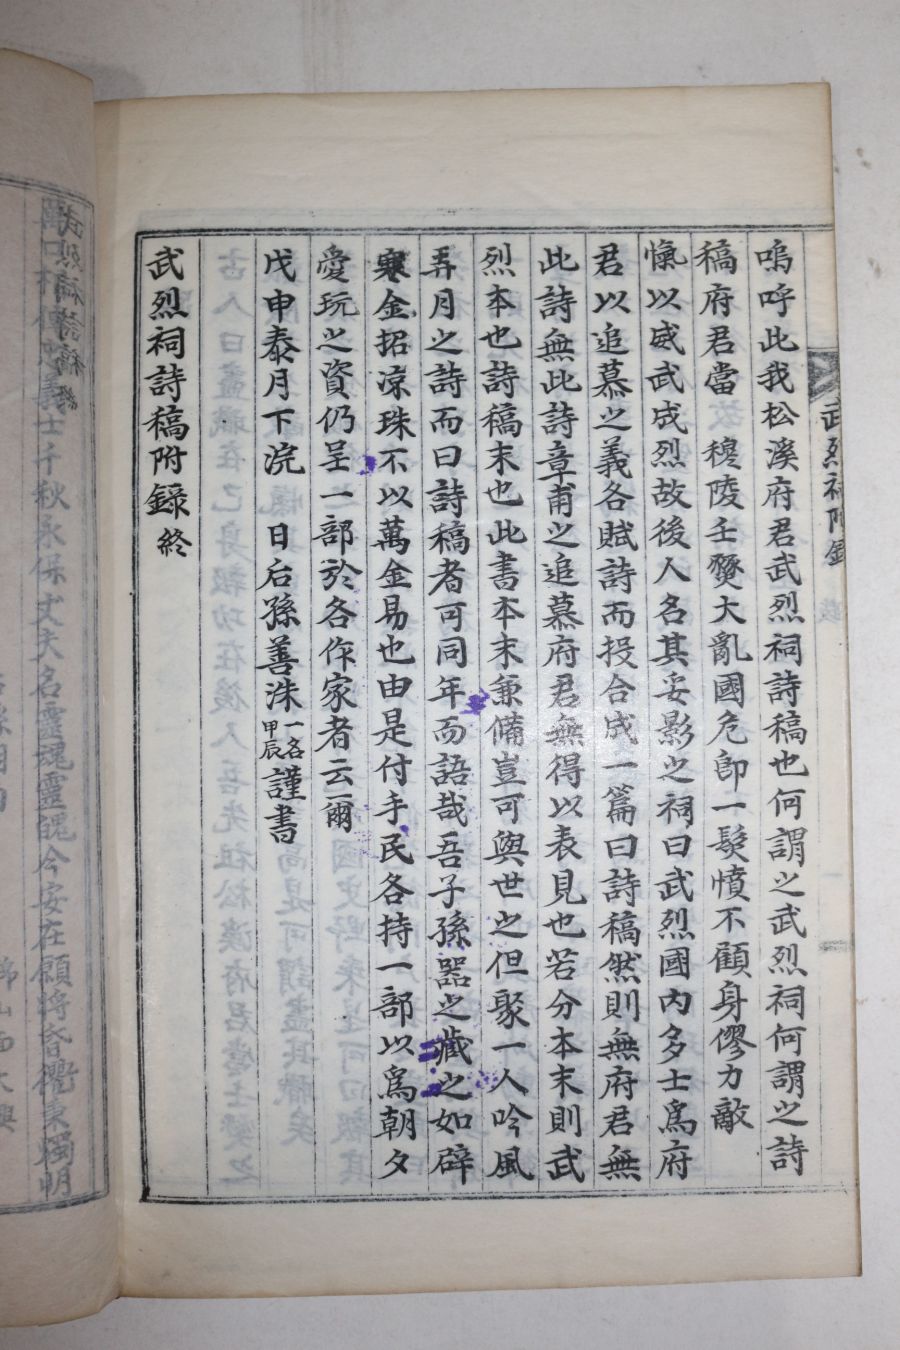 嗚呼此我松溪府君武烈祠詩稿也何謂之武烈祠何謂之詩
稿府君當 穆陵壬燹大亂國危卽一髮憤不顧身僇力敵
愾以威武成烈故後人名其妥影之祠曰武烈國內多士爲府
君以追慕之義各賦詩而投合成一篇曰詩稿然則無府君無
此詩無此詩章甫之追慕府君無得以表見也若分本末則武
烈本也詩稿末也此書本末兼備豈可與世之但聚一人吟風
弄月之詩而曰詩稿者可同年而語哉吾子孫器之藏之如辟
寒金招凉珠不以萬金易也由是付手民各持一部以爲朝夕
愛玩之資仍呈一部於各作家者云爾
戊申泰月下浣 日后孫善洙一名甲辰謹書
武烈祠詩稿附錄終
武烈祠附錄